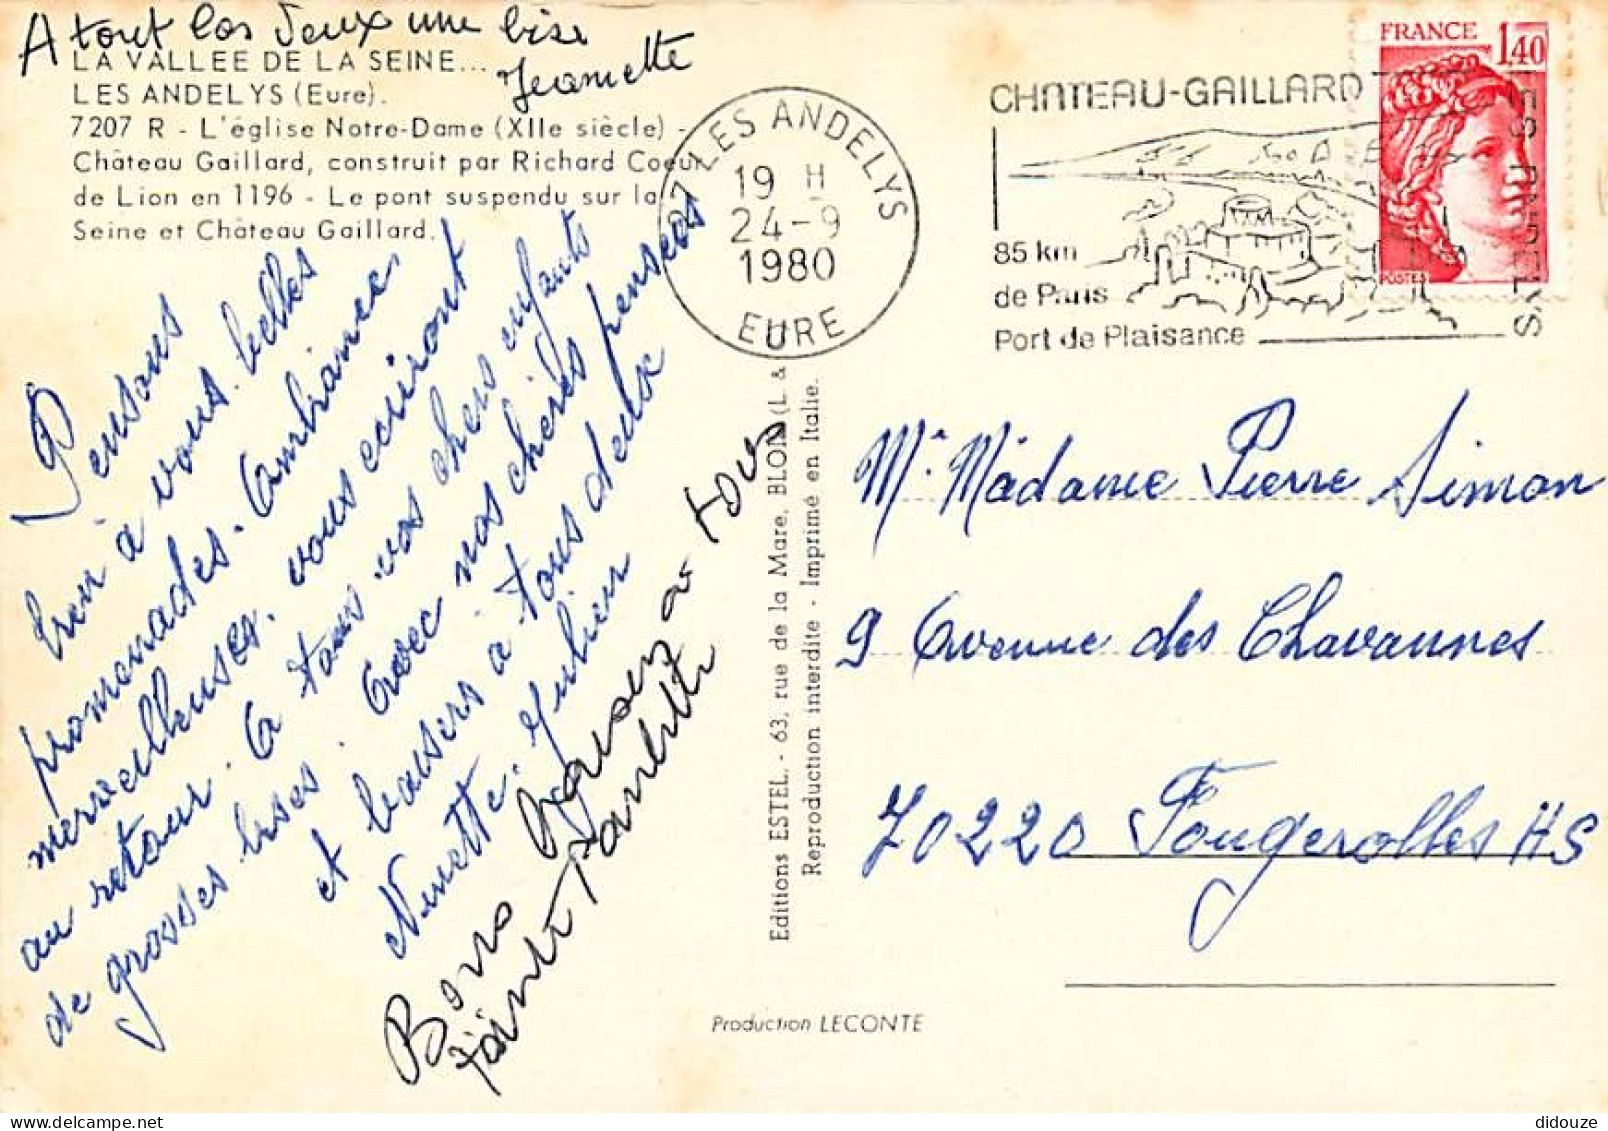 A tout les deux une bise
Jeannette
LA VALLEE DE LA SEINE...
LES ANDELYS (Eure).
7207 R - L'église Notre-Dame (XIIe siècle) -
Château Gaillard, construit par Richard Coeur
de Lion en 1196 - Le pont suspendu sur la
Seine et Château Gaillard.
27 LES ANDELYS
19 H
24-9
1980
EURE
CHATEAU-GAILLARD
LES ANDELYS
85 km
de Paris
Port de Plaisance
FRANCE 1,40
POSTES
Pensons
bien à vous. belles
promenades. Ambiances
merveilleuses. vous ecriront
au retour. A tous vos chers enfants
de grosses bises. Avec nos chères pensées
et baisers à tous deux
Ninette. Julien
Bons baisers a tous
Paulette
Editions ESTEL. - 63, rue de la Mare, BLOIS (L. &
Reproduction interdite - Imprimé en Italie.
Production LECONTE
Mr Madame Pierre Simon
9 Avenue des Chavannes
70220 Fougerolles HS
didouze